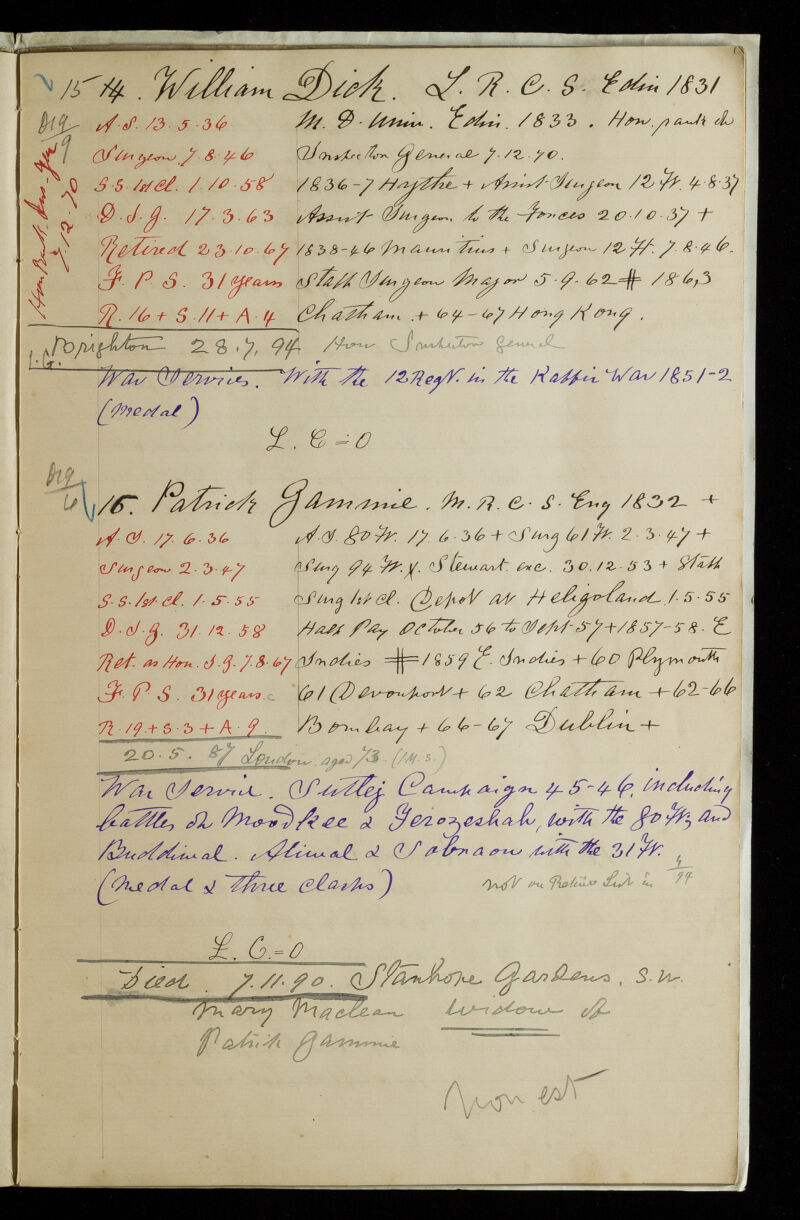 15 14. William Dick. L. R. C. S. Edin 1831
Drg
9
Hon. Rank Ins. Gen
7.12.70
A.S. 13.5.36. M. D. Univ. Edin. 1833. Hon. rank of
Surgeon. 7.8.46 Inspector General 7.12.70.
S.S. 1st Cl. 1.10.58 1836-7 Hythe + Assist Surgeon 12 Ft. 4.8.37
D.I.G. 17.3.63 Assist Surgeon to the Forces 20.10.37 +
Retired 23.10.67 1838-46 Mauritius + Surgeon 12 Ft. 7.8.46.
F. P. S. 31 years Staff Surgeon Major 5.9.62 # 1863
R. 16 + S. 11 + A. 4 Chatham. + 64-67 Hong Kong.
I.G. Brighton 28.7.94 Hon Inspector General
War Services. With the 12 Regt. in the Kaffir War 1851-2
(Medal)
L. C = 0
Drg
6
16. Patrick Gammie. M. R. C. S. Eng 1832 +
A.S. 17.6.36 A.S. 80 Ft. 17.6.36 + Surg 61 Ft. 2.3.47 +
Surgeon 2.3.47 Surg 94 Ft. v. Stewart. exc. 30.12.53 + Staff
S.S. 1st Cl. 1.5.55 Surg 1st Cl. Depot at Heligoland 1.5.55
D.I.G. 31.12.58 Half Pay October 56 to Sept 57 + 1857-58. E
Ret. as Hon. I.G. 7.8.67 Indies # 1859 E. Indies + 60 Plymouth
F. P. S. 31 years 61 Devonport + 62 Chatham + 62-66
R. 19 + S. 3 + A. 9. Bombay + 66-67 Dublin +
20.5.87 London. aged 73. (I.M.S.)
War Service. Sutlej Campaign 45-46. including
battles of Moodkee & Ferozeshah, with the 80 Ft, and
Buddiwal. Aliwal & Sobraon with the 31 Ft.
(Medal & three clasps) not on Retired List in 4/94
L. C. = 0
Died. 7.11.90. Stanhope Gardens. S.W.
Mary Maclean widow of
Patrick Gammie
non est